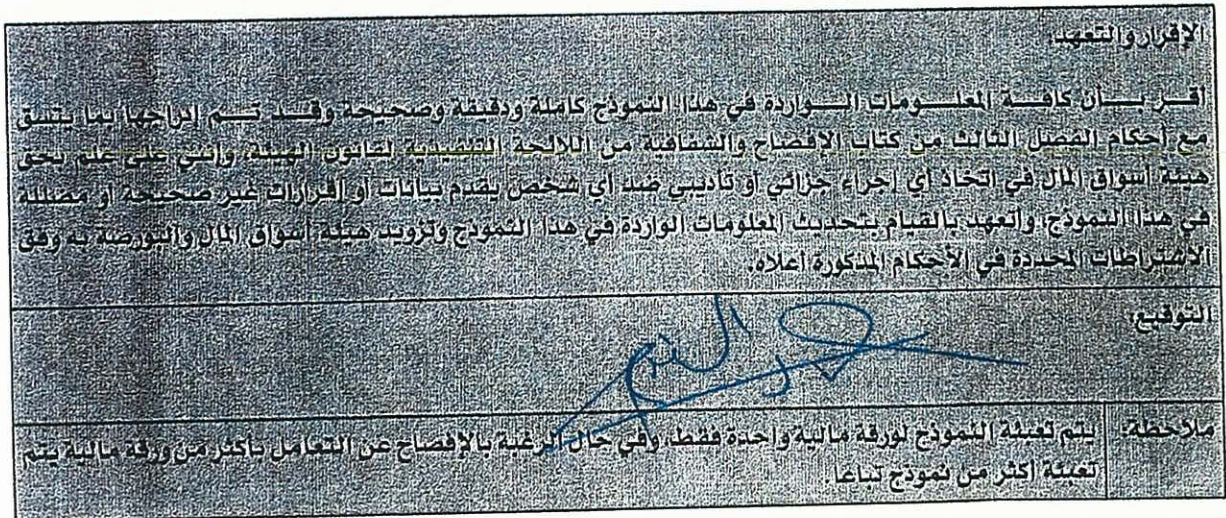 الإقرار والتعهد:
أقـــر بـــــأن كافـــــة المعلـــــومات الـــــواردة في هـــذا النموذج كاملة ودقيقة وصحيحة وقـــد تـــم إدراجها بما يتسق
مع أحكام الفصل الثالث من كتاب الإفصاح والشفافية من اللائحة التنفيذية لقانون الهيئة، وإنني على علم بحق
هيئة أسواق المال في اتخاذ أي إجراء جزائي أو تأديبي ضد أي شخص يقدم بيانات أو إقرارات غير صحيحة أو مضللة
في هذا النموذج، وأتعهد بالقيام بتحديث المعلومات الواردة في هذا النموذج وتزويد هيئة أسواق المال والبورصة به وفق
الاشتراطات المحددة في الأحكام المذكورة أعلاه.
التوقيع:
ملاحظة: يتم تعبئة النموذج لورقة مالية واحدة فقط، وفي حال الرغبة بالإفصاح عن التعامل بأكثر من ورقة مالية يتم
تعبئة أكثر من نموذج تباعا.